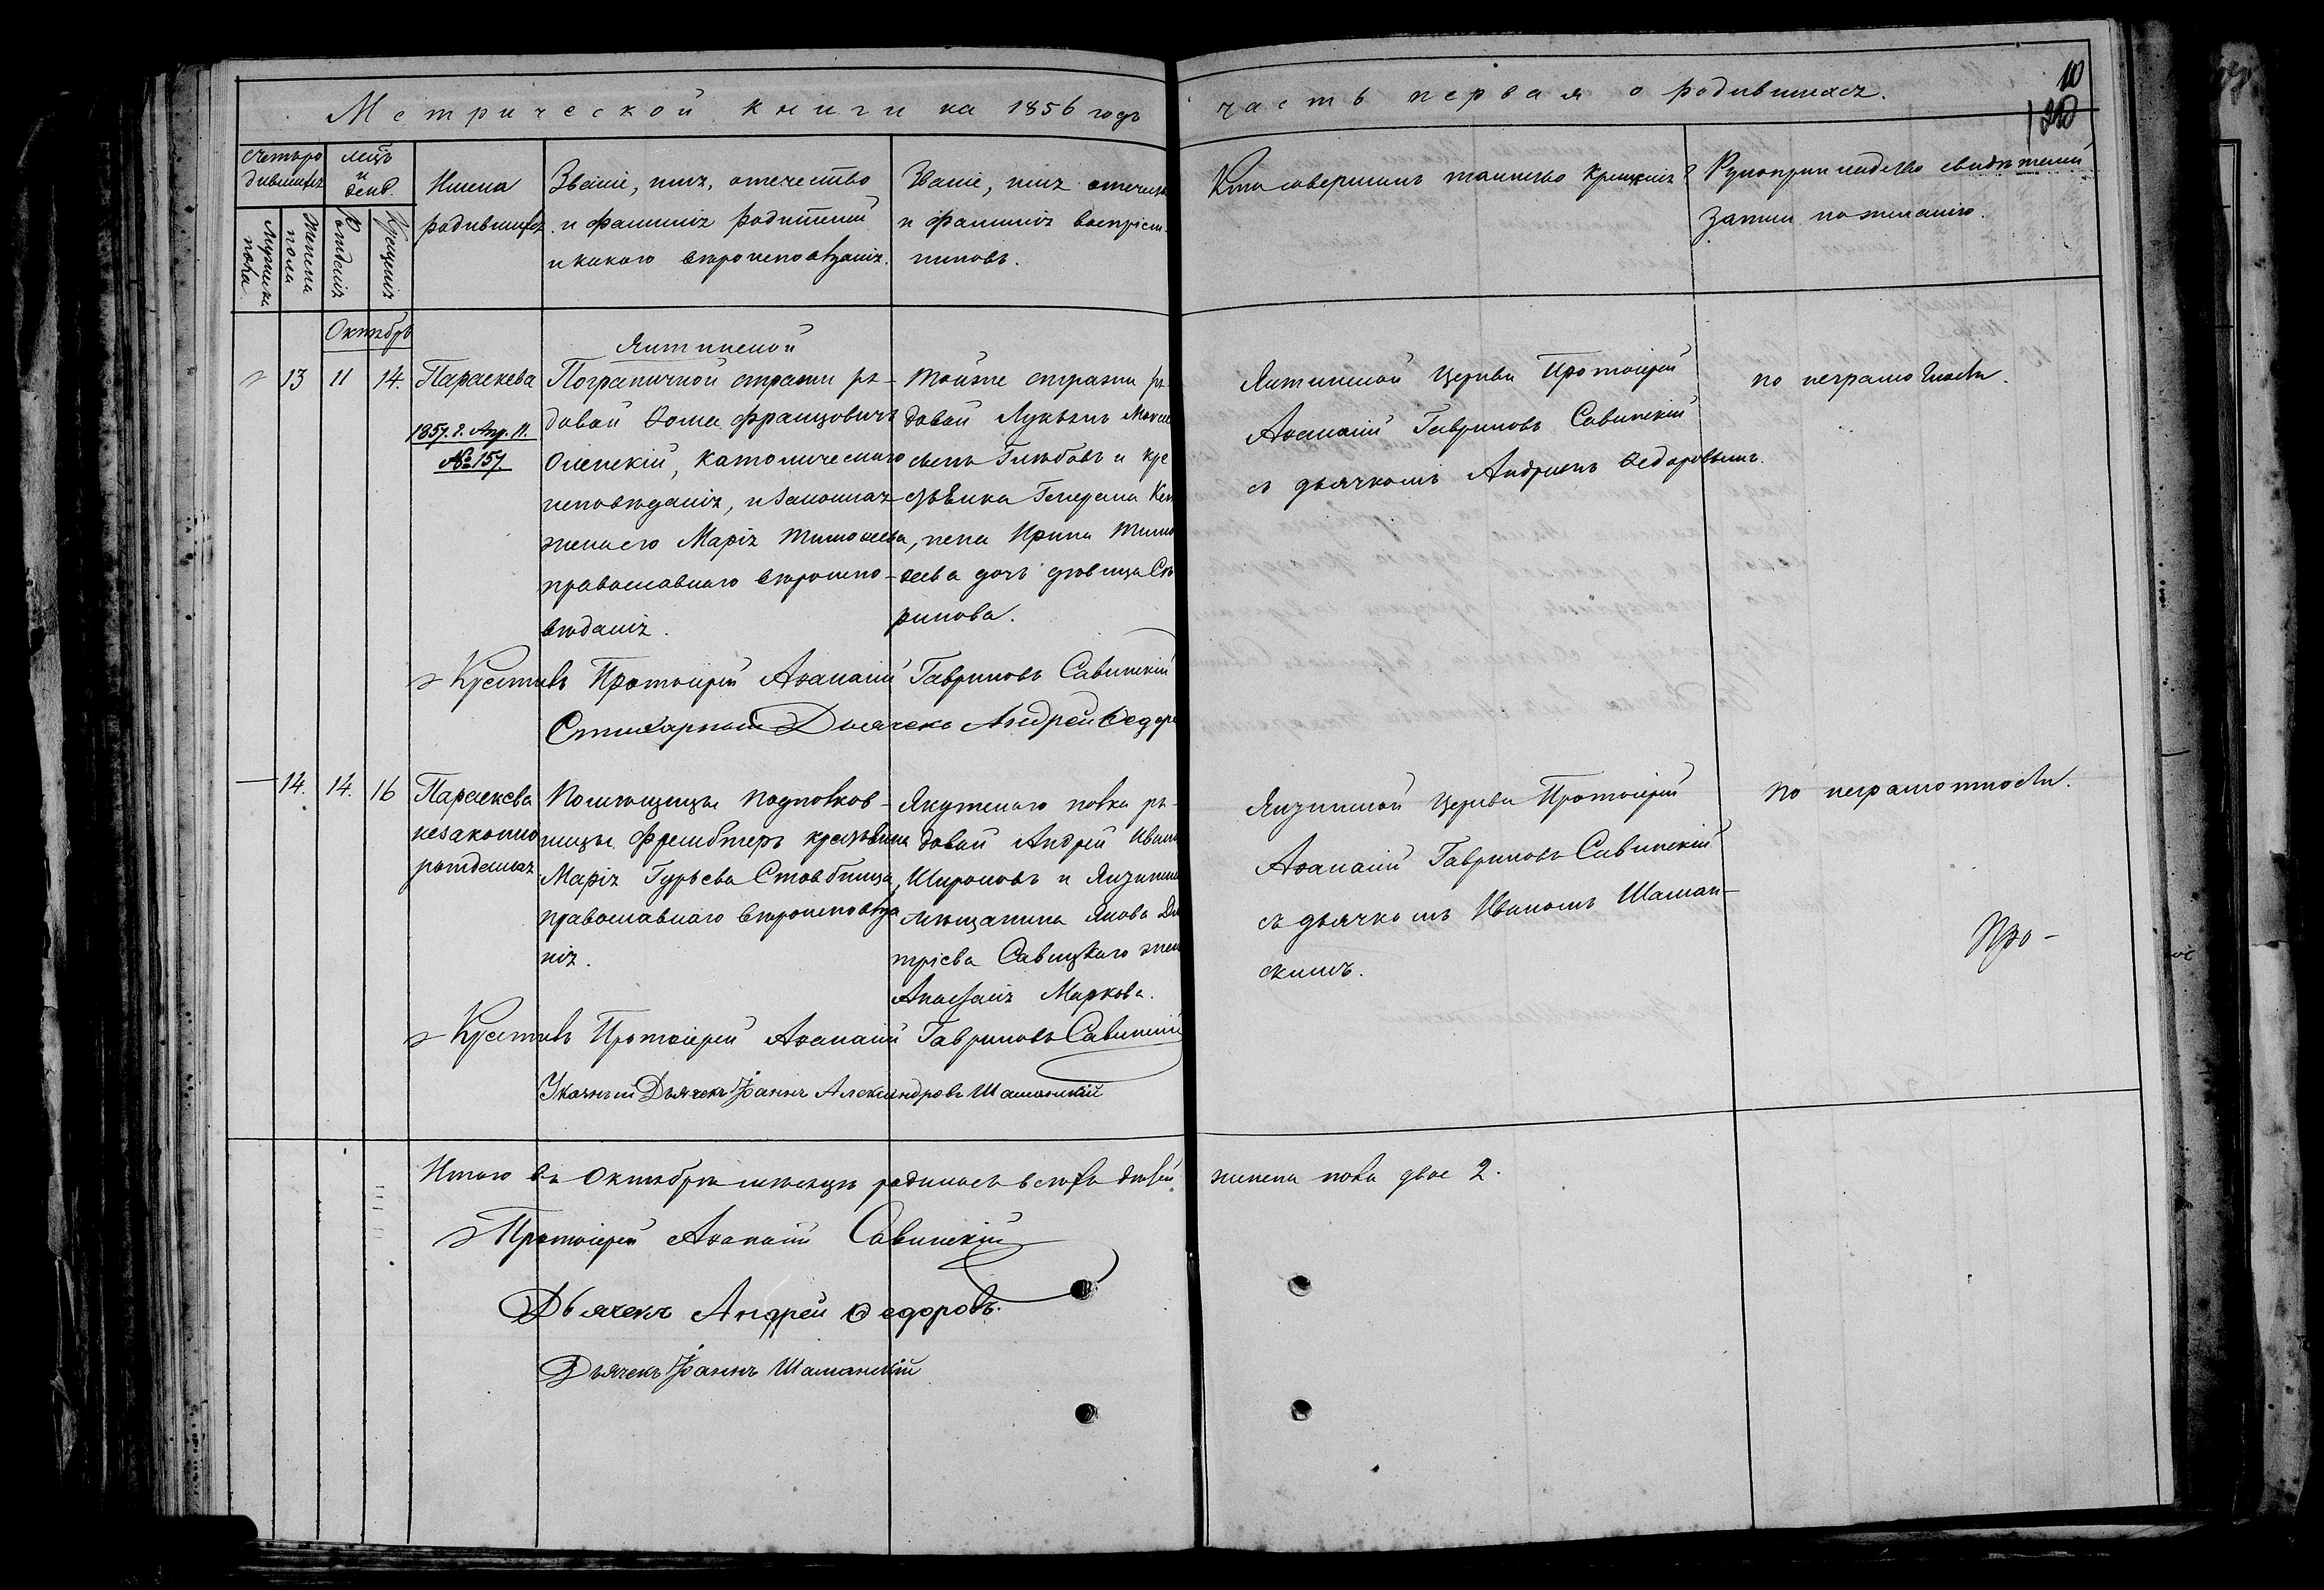 Метрической книги на 1856 годъ часть первая о родившихся.
10
Счетъ ро
дившихся
Мужеска
пола
Женска
пола
Мѣсяцъ
и
день.
Рожденія
Крещенія
Имена
родившихся
Званіе, имя, отечество
и фамилія родителей
и какого вѣроисповѣданія.
Званіе, имя отечество
и фамилія воспріем-
никовъ.
Кто совершилъ таинство крещенія?
Рукоприкладство свидѣтелей
записи по желанію.
Октябрь
13
11
14.
Параскева
1857. г. Апр. 11.
№ 157
Ялтинской
Пограничной стражи ря-
довой Ѳома Францовичъ
Оленскій, католическаго
исповѣданія, и законная
жена его Марія Тимоѳеева,
православнаго вѣроиспо-
вѣданія.
Тойже стражи ря-
довой Лукьянъ
Глѣбовъ и кре
стьянка Генерала
, дѣвица Ирина Тимо
ѳеева дочь дѣвица
рикова.
Ялтинской Церкви Протоіерей
Аѳанасій Гавриловъ Савинскій
съ дьячкомъ Андреемъ Ѳедоровымъ.
по неграмотности.
Крестилъ Протоіерей Аѳанасій Гавриловъ Савинскій
Стихарный Дьячекъ Андрей Ѳедоро
14.
14.
16
Параскева
незаконно
рожденная
Помѣщицы Подполков-
ницы крестьянка
Марія Гурьева Столбница,
православнаго вѣроисповѣда
нія.
Якутскаго полка ря-
довой Андрей Ивано
Широковъ и
мѣщанина Якова Дми
тріева Савицкаго жена
Анастасія Маркова.
Церкви Протоіерей
Аѳанасій Гавриловъ Савинскій
съ дьячкомъ Иваномъ Шаман-
скимъ.
по неграмотности.
Про-
Крестилъ Протоіерей Аѳанасій Гавриловъ Савинскій
Указный Дьячекъ Іоаннъ Александровъ Шаманскій
Итого въ Октябрѣ мѣсяцѣ родилось всѣхъ дѣтей женска пола двое 2.
Протоіерей Аѳанасій Савинскій
Дьячекъ Андрей Ѳедоровъ.
Дьячекъ Іоаннъ Шаманскій